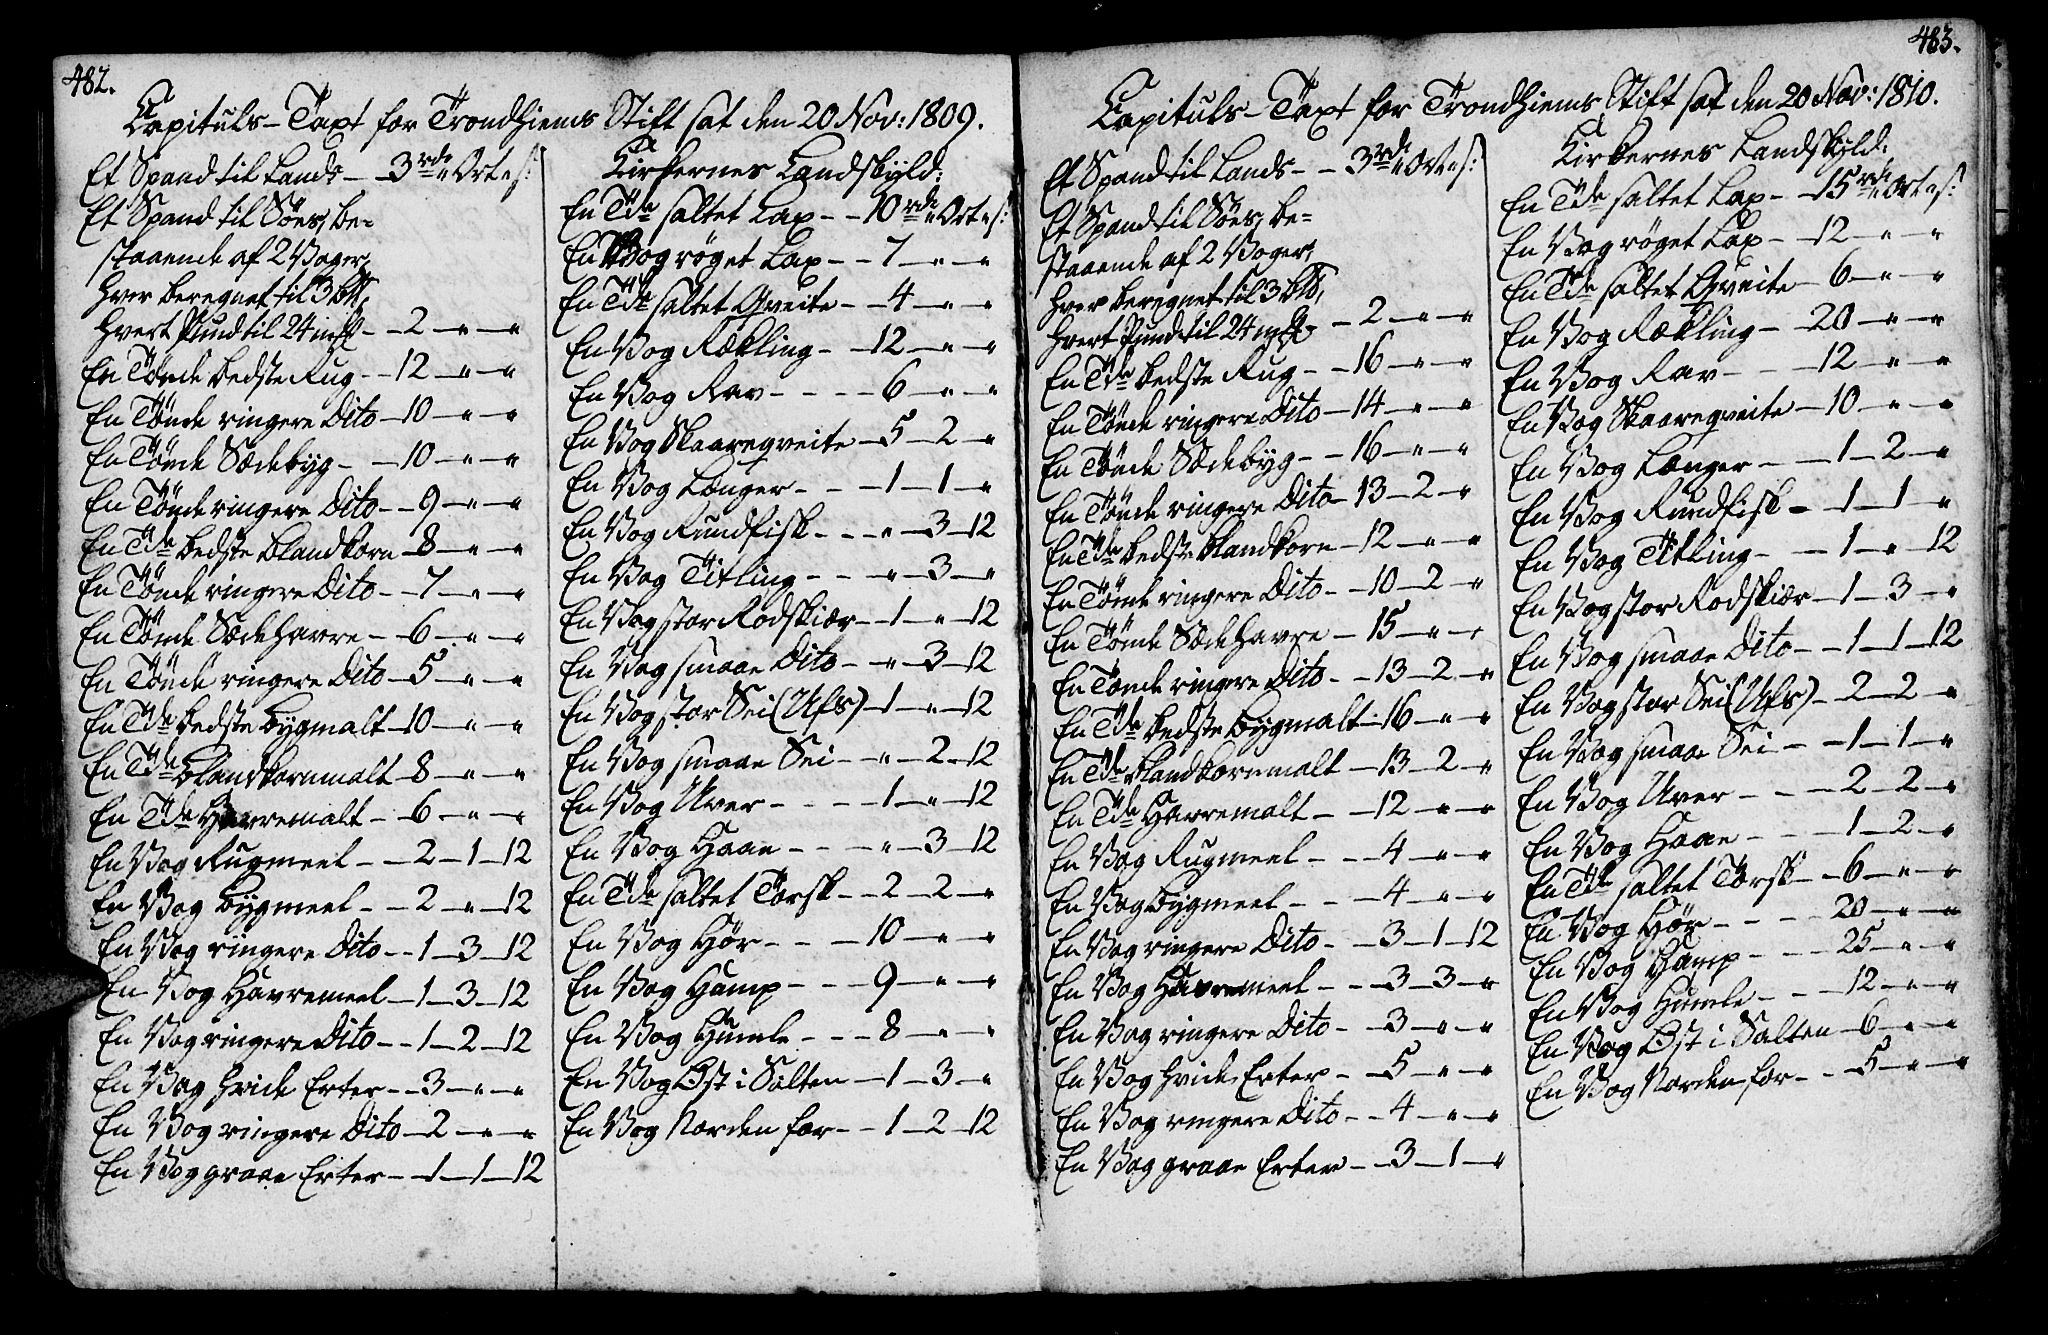 482.
Capituls-Taxt for Trondhiems Stift sat den 20. Nov: 1809.
Et Spand til Lands - - 3 rd „ Ort „ s:
Et Spand til Söes, be-
staaende af 2 Voger,
hver beregnet til 3 b℔,
hvert Pund til 24 mk - 2 - „ - „
En Tönde bedste Rug - - 12 - „ - „
En Tönde ringere Dito - 10 - „ - „
En Tönde Sædebyg - - 10 - „ - „
En Tönde ringere Dito - - 9 - „ - „
En Tde bedste Blandkorn - 8 - „ - „
En Tönde ringere Dito - - 7 - „ - „
En Tönde Sædehavre - - 6 - „ - „
En Tönde ringere Dito - 5 - „ - „
En Tde bedste Bygmalt - 10 - „ - „
En Tde Blandkornmalt - 8 - „ - „
En Tde Havremalt - 6 - „ - „
En Vog Rugmeel - - 2 - 1 - 12
En Vog Bygmeel - - 2 - „ - 12
En Vog ringere Dito - - 1 - 3 - 12
En Vog Havremeel - 1 - 3 - 12
En Vog ringere Dito - - 1 - 2 - 12
En Vog hvide Erter - - 3 - „ - „
En Vog ringere Dito - 2 - „ - „
En Vog graae Erter - - 1 - 1 - 12
Kirkernes Landskyld:
En Tde saltet Lax - - 10 rd „ Ort „ s:
En Vog röget Lax - - 7 - „ - „
En Tde saltet Qveite - - 4 - „ - „
En Vog Rækling - - 12 - „ - „
En Vog Rav - - - - 6 - „ - „
En Vog Skaareqveite - 5 - 2 - „
En Vog Længer - - - 1 - 1 - „
En Vog Rundfisk - - - „ - 3 - 12
En Vog Titling - - - „ - 3 - „
En Vog stor Rodskiær - - 1 - „ - 12
En Vog smaae Dito - - „ - 3 - 12
En Vog stor Sei (Ufs) - 1 - „ - 12
En Vog smaae Sei - - „ - 2 - 12
En Vog Uer - - - - 1 - „ - 12
En Vog Haae - - - „ - 3 - 12
En Tde saltet Torsk - - 2 - 2 - „
En Vog Hör - - - 10 - „ - „
En Vog Hamp - - - 9 - „ - „
En Vog Humle - - - 8 - „ - „
En Vog Ost i Salten - 1 - 3 - „
En Vog Norden for - - 1 - 2 - 12
483.
Capituls-Taxt for Trondhiems Stift sat den 20 Nov: 1810.
Et Spand til Lands - - 3 rd „ Ort „ s:
Et Spand til Söes, be-
staaende af 2 Voger,
hver beregnet til 3 b℔,
hvert Pund til 24 mk - 2 - „ - „
En Tde bedste Rug - - 16 - „ - „
En Tönde ringere Dito - 14 - „ - „
En Tönde Sædebyg - - 16 - „ - „
En Tönde ringere Dito - 13 - 2 - „
En Tde bedste Blandkorn - 12 - „ - „
En Tönde ringere Dito - - 10 - 2 - „
En Tönde Sædehavre - 15 - „ - „
En Tönde ringere Dito - - 13 - 2 - „
En Tde bedste Bygmalt - 16 - „ - „
En Tde Blandkornmalt - 13 - 2 - „
En Tde Havremalt - - 12 - „ - „
En Vog Rugmeel - - - 4 - „ - „
En Vog Bygmeel - - - 4 - „ - „
En Vog ringere Dito - - 3 - 1 - 12
En Vog Havremeel - - 3 - 3 - „
En Vog ringere Dito - - 3 - „ - „
En Vog hvide Erter - - 5 - „ - „
En Vog ringere Dito - - 4 - „ - „
En Vog graae Erter - - 3 - 1 - „
Kirkernes Landskyld:
En Tde saltet Lax - - 15 rd „ Ort „ s:
En Vog röget Lax - - 12 - „ - „
En Tde saltet Qveite - 6 - „ - „
En Vog Rækling - - 20 - „ - „
En Vog Rav - - - 12 - „ - „
En Vog Skaareqveite - 10 - „ - „
En Vog Længer - - - 1 - 2 - „
En Vog Rundfisk - - 1 - 1 - „
En Vog Titling - - - 1 - „ - 12
En Vog stor Rodskiær - 1 - 3 - „
En Vog smaae Dito - - 1 - 1 - 12
En Vog stor Sei (Ufs) - 2 - 2 - „
En Vog smaae Sei - - 1 - 1 - „
En Vog Uer - - - 2 - 2 - „
En Vog Haae - - - 1 - 2 - „
En Tde saltet Torsk - - 6 - „ - „
En Vog Hör - - - - 20 - „ - „
En Vog Hamp - - - 25 - „ - „
En Vog Humle - - - 12 - „ - „
En Vog Ost i Salten - 6 - „ - „
En Vog Norden for - - 5 - „ - „